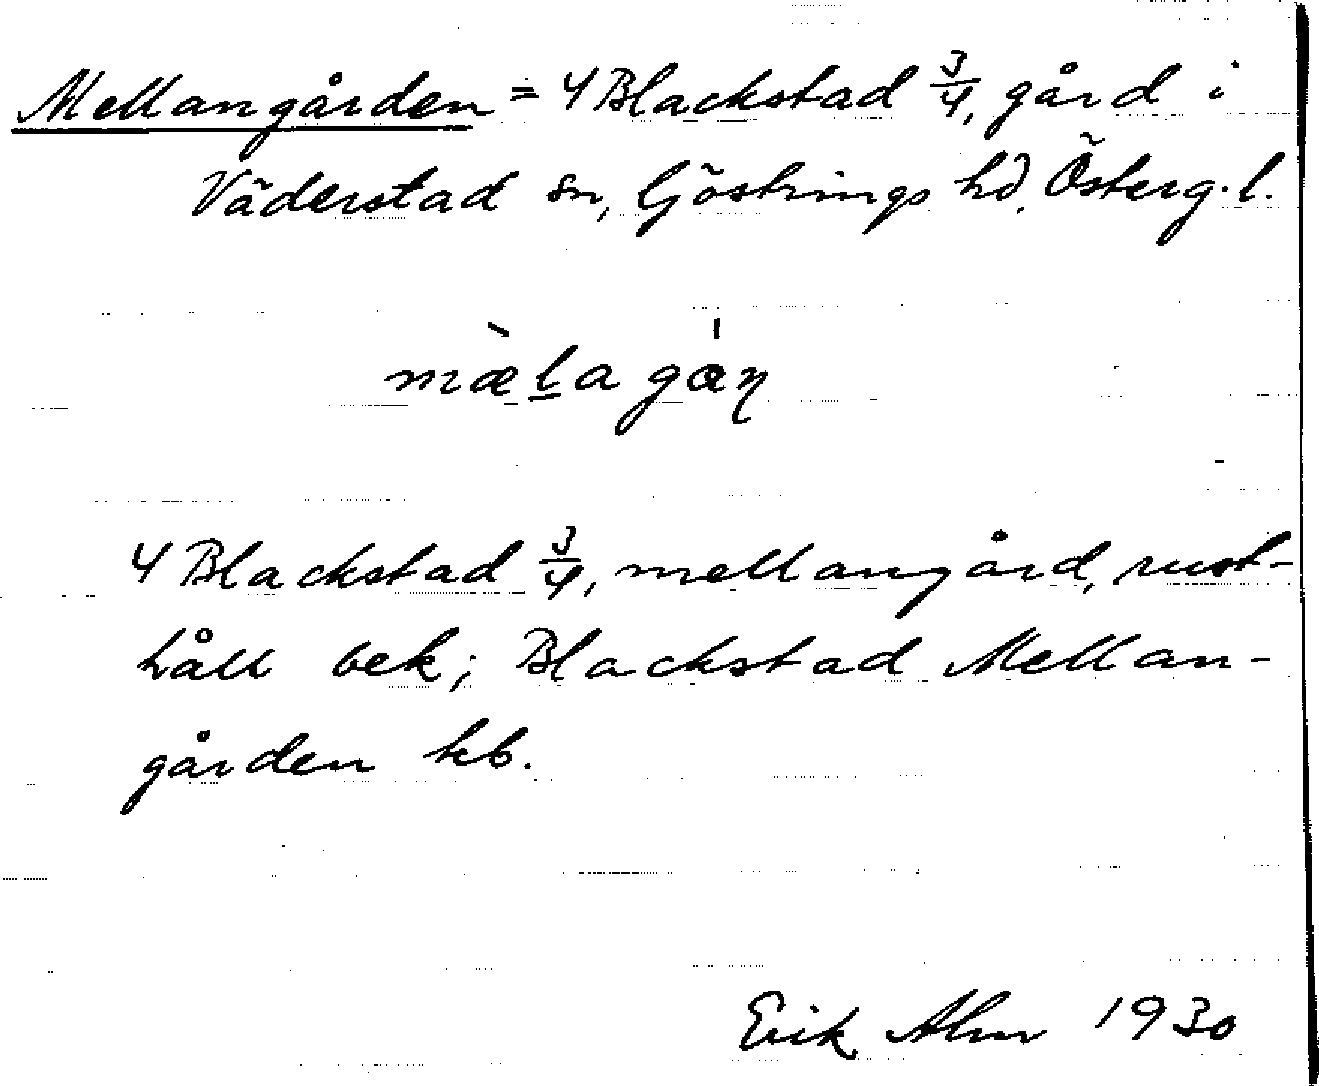 Mellangården = 4 Blackstad 3/4, gård i
Väderstad sn, Göstrings hd. Österg. l.
mæ̀l̲a gɑ́ɳ
4 Blackstad 3/4, mellangård, rust-
håll bek; Blackstad Mellan-
gården kb.
Erik Alm 1930